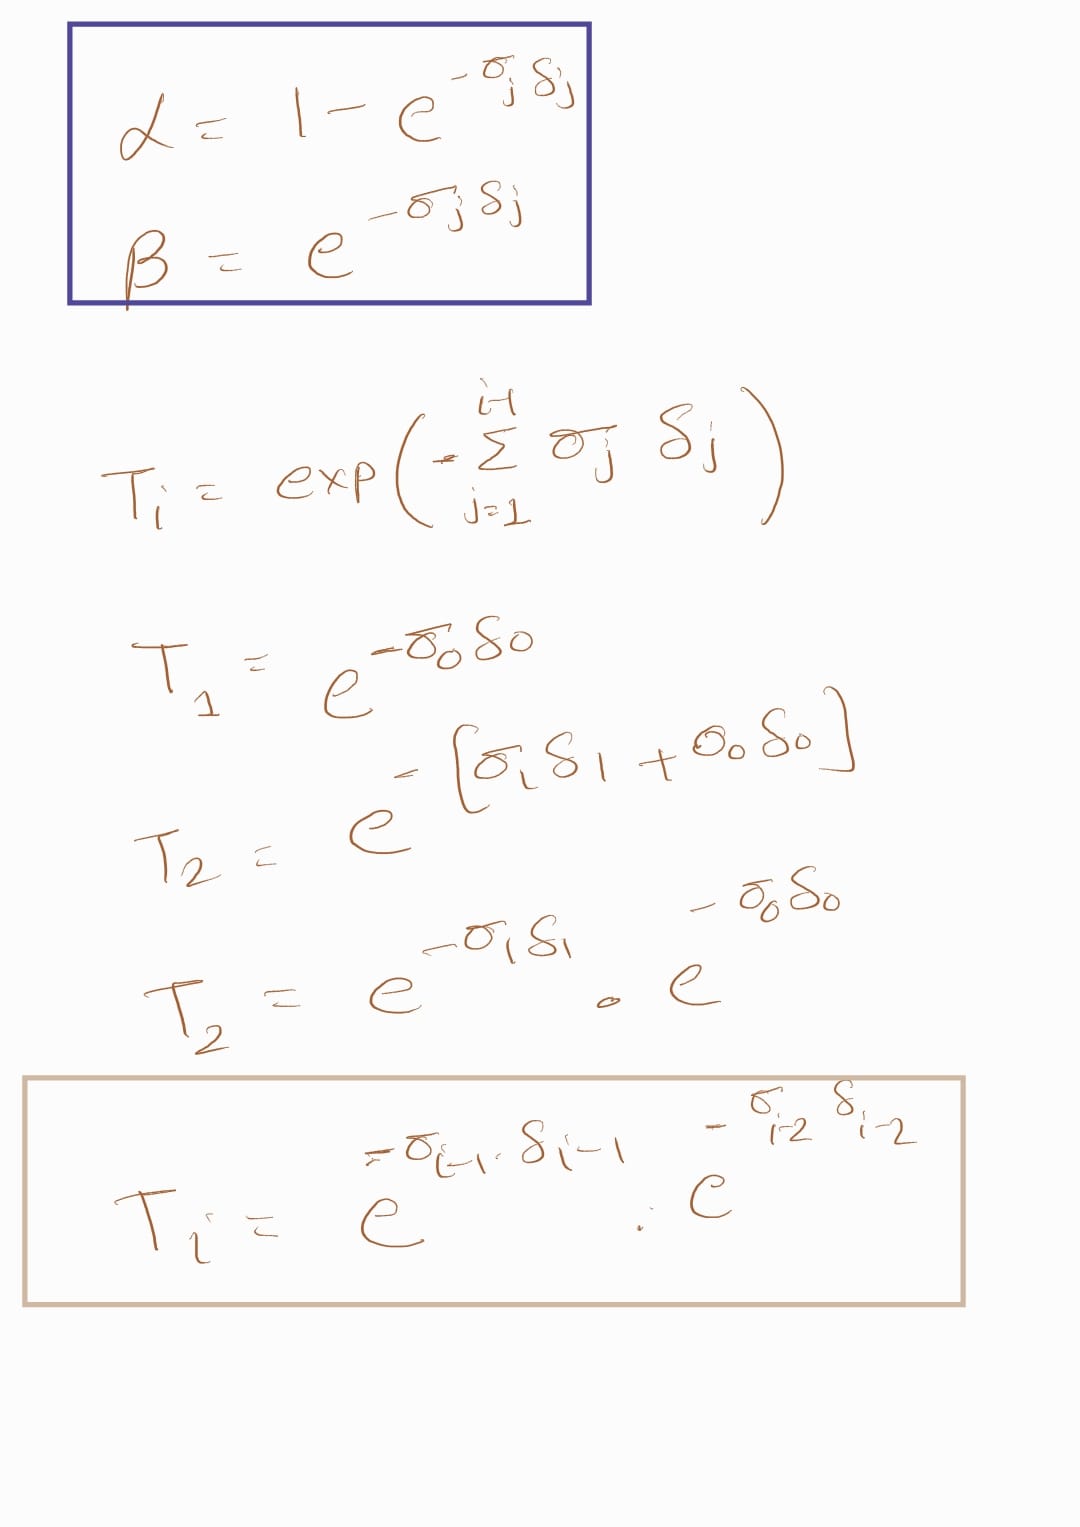 α = 1 - e^{-σ_j δ_j}
β = e^{-σ_j δ_j}
T_i = exp(-∑_{j=1}^{i-1} σ_j δ_j)
T_1 = e^{-σ_0 δ_0}
T_2 = e^{-[σ_1 δ_1 + σ_0 δ_0]}
T_2 = e^{-σ_1 δ_1} . e^{-σ_0 δ_0}
T_i = e^{-σ_{i-1} . δ_{i-1}} . e^{-σ_{i-2} δ_{i-2}}